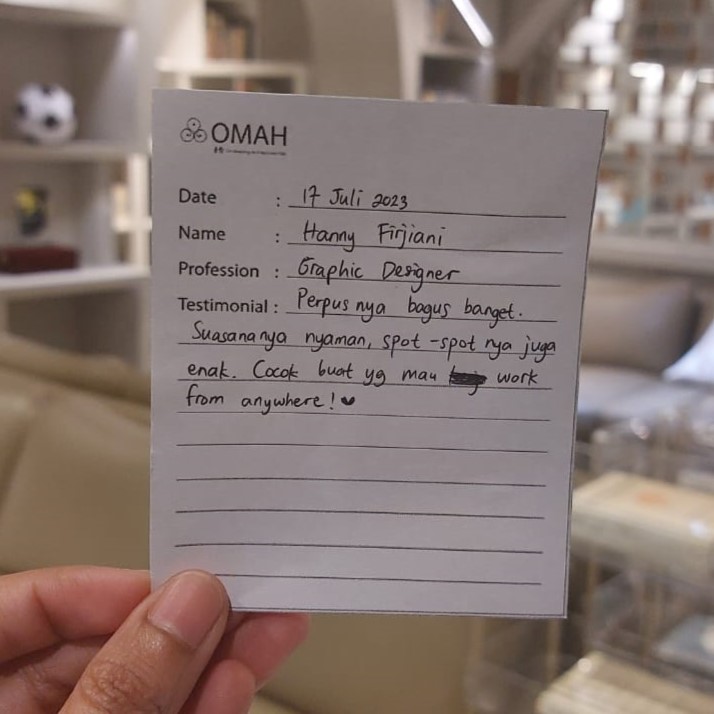 OMAH
Date : 17 Juli 2023
Name : Hanny Firjiani
Profession : Graphic Designer
Testimonial : Perpus nya bagus banget.
Suasana nya nyaman, spot-spot nya juga
enak. Cocok buat yg mau work
from anywhere! ♥